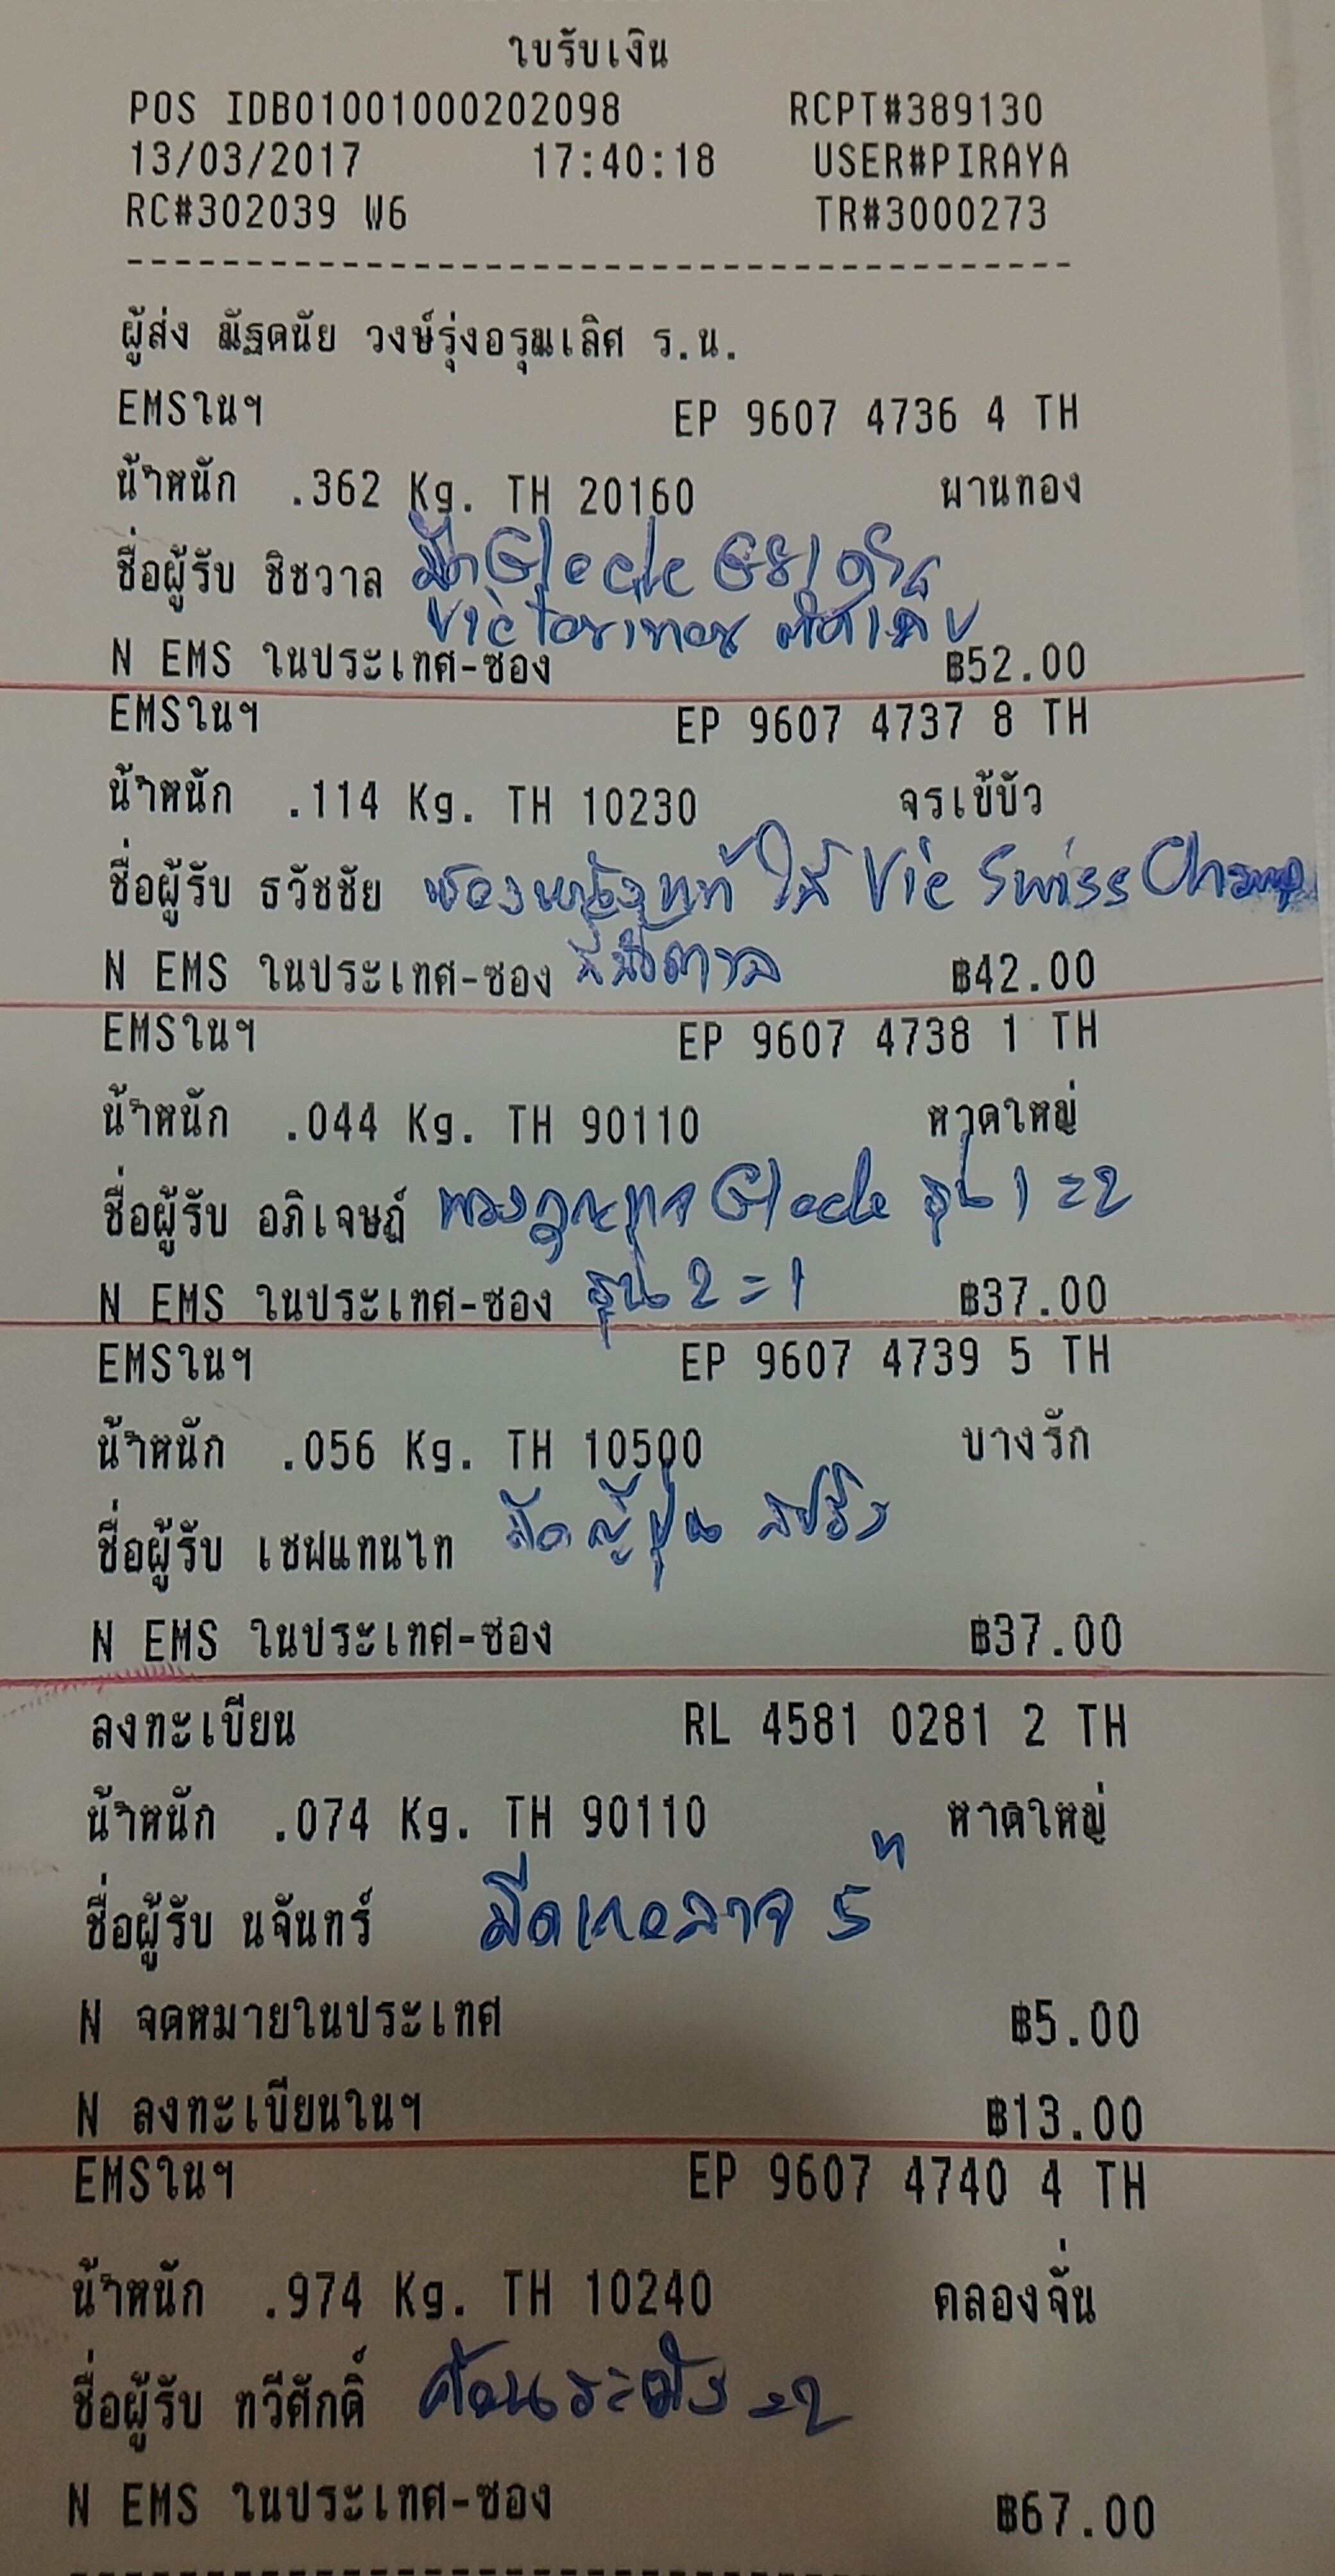 ใบรับเงิน
POS IDB01001000202098 RCPT#389130
13/03/2017 17:40:18 USER#PIRAYA
RC#302039 W6 TR#3000273
----------------------------------------
ผู้ส่ง ณัฐดนัย วงษ์รุ่งอรุณเลิศ ร.น.
EMSในฯ EP 9607 4736 4 TH
น้ำหนัก .362 Kg. TH 20160 พานทอง
ชื่อผู้รับ ชิชวาล Glock G81
Victorinox
N EMS ในประเทศ-ซอง ฿52.00
EMSในฯ EP 9607 4737 8 TH
น้ำหนัก .114 Kg. TH 10230 จรเข้บัว
ชื่อผู้รับ ธวัชชัย ซองหนังแท้ ใส่ Vic Swiss Champ
N EMS ในประเทศ-ซอง สีน้ำตาล ฿42.00
EMSในฯ EP 9607 4738 1 TH
น้ำหนัก .044 Kg. TH 90110 หาดใหญ่
ชื่อผู้รับ อภิเจษฎ์ พวงกุญแจ Glock รุ่น 1 = 2
N EMS ในประเทศ-ซอง รุ่น 2 = 1 ฿37.00
EMSในฯ EP 9607 4739 5 TH
น้ำหนัก .056 Kg. TH 10500 บางรัก
ชื่อผู้รับ เชฟแทนไท
N EMS ในประเทศ-ซอง ฿37.00
ลงทะเบียน RL 4581 0281 2 TH
น้ำหนัก .074 Kg. TH 90110 หาดใหญ่
ชื่อผู้รับ นจันทร์ มีดแกะลาย 5"
N จดหมายในประเทศ ฿5.00
N ลงทะเบียนในฯ ฿13.00
EMSในฯ EP 9607 4740 4 TH
น้ำหนัก .974 Kg. TH 10240 คลองจั่น
ชื่อผู้รับ ทวีศักดิ์ ค้อนระฆัง = 2
N EMS ในประเทศ-ซอง ฿67.00